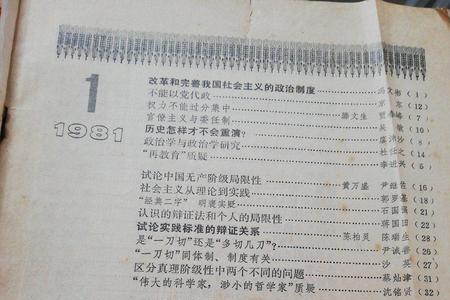 1
1981
改革和完善我国社会主义的政治制度 文彬（1）
不能以党代政 （12）
权力不能过分集中 （10）
官僚主义与委任制 滕文生（7）
历史怎样才不会重演？ 敏（10）
政治学与政治学研究 （14）
“再教育”质疑 李 （5）
试论中国无产阶级局限性 黄万盛 尹继佐（16）
社会主义从理论到实践 郭罗基（18）
“经典二字”明褒实贬 石国（21）
认识的辩证法和个人的局限性 蒋国田（22）
试论实践标准的辩证关系 陈柏灵 陈瑞生（28）
是“一刀切”还是“多切几刀”？ 尹诚善（26）
“一刀切”同体制、制度有关 沙英（27）
区分真理阶级性中两个不同的问题 蔡灿津（31）
“伟大的科学家，渺小的哲学家”质疑 沈铭贤（32）